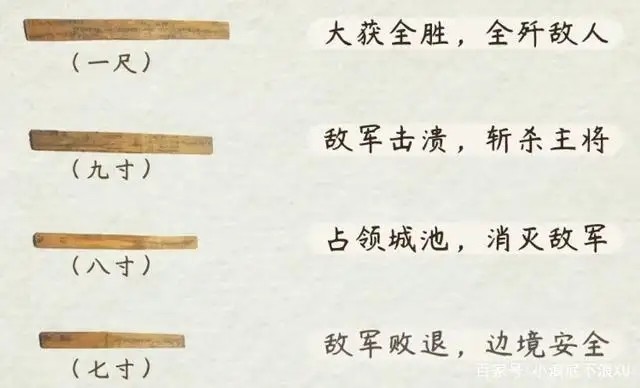 大获全胜，全歼敌人
（一尺）
敌军击溃，斩杀主将
（九寸）
占领城池，消灭敌军
（八寸）
敌军败退，边境安全
（七寸）
百家号/小浪屁不浪XU